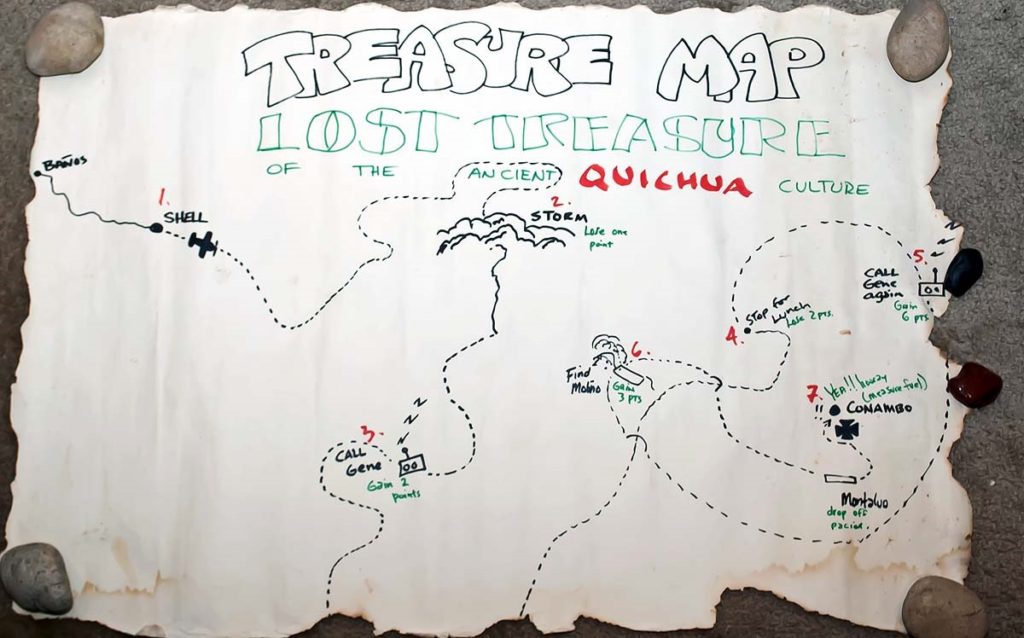 TREASURE MAP
LOST TREASURE
OF THE ANCIENT QUICHUA CULTURE
BAÑOS
1.
SHELL
2.
STORM
Lose one
point
3.
CALL
Gene
Gain 2
points
4.
STOP for
Lunch
Lose 2 pts.
5.
CALL
Gene
again
Gain
6 pts.
6.
Find
Molino
Gain
3 pts
7.
YEA!!! hooray
(measure fuel)
CONAMBO
Montalvo
drop off